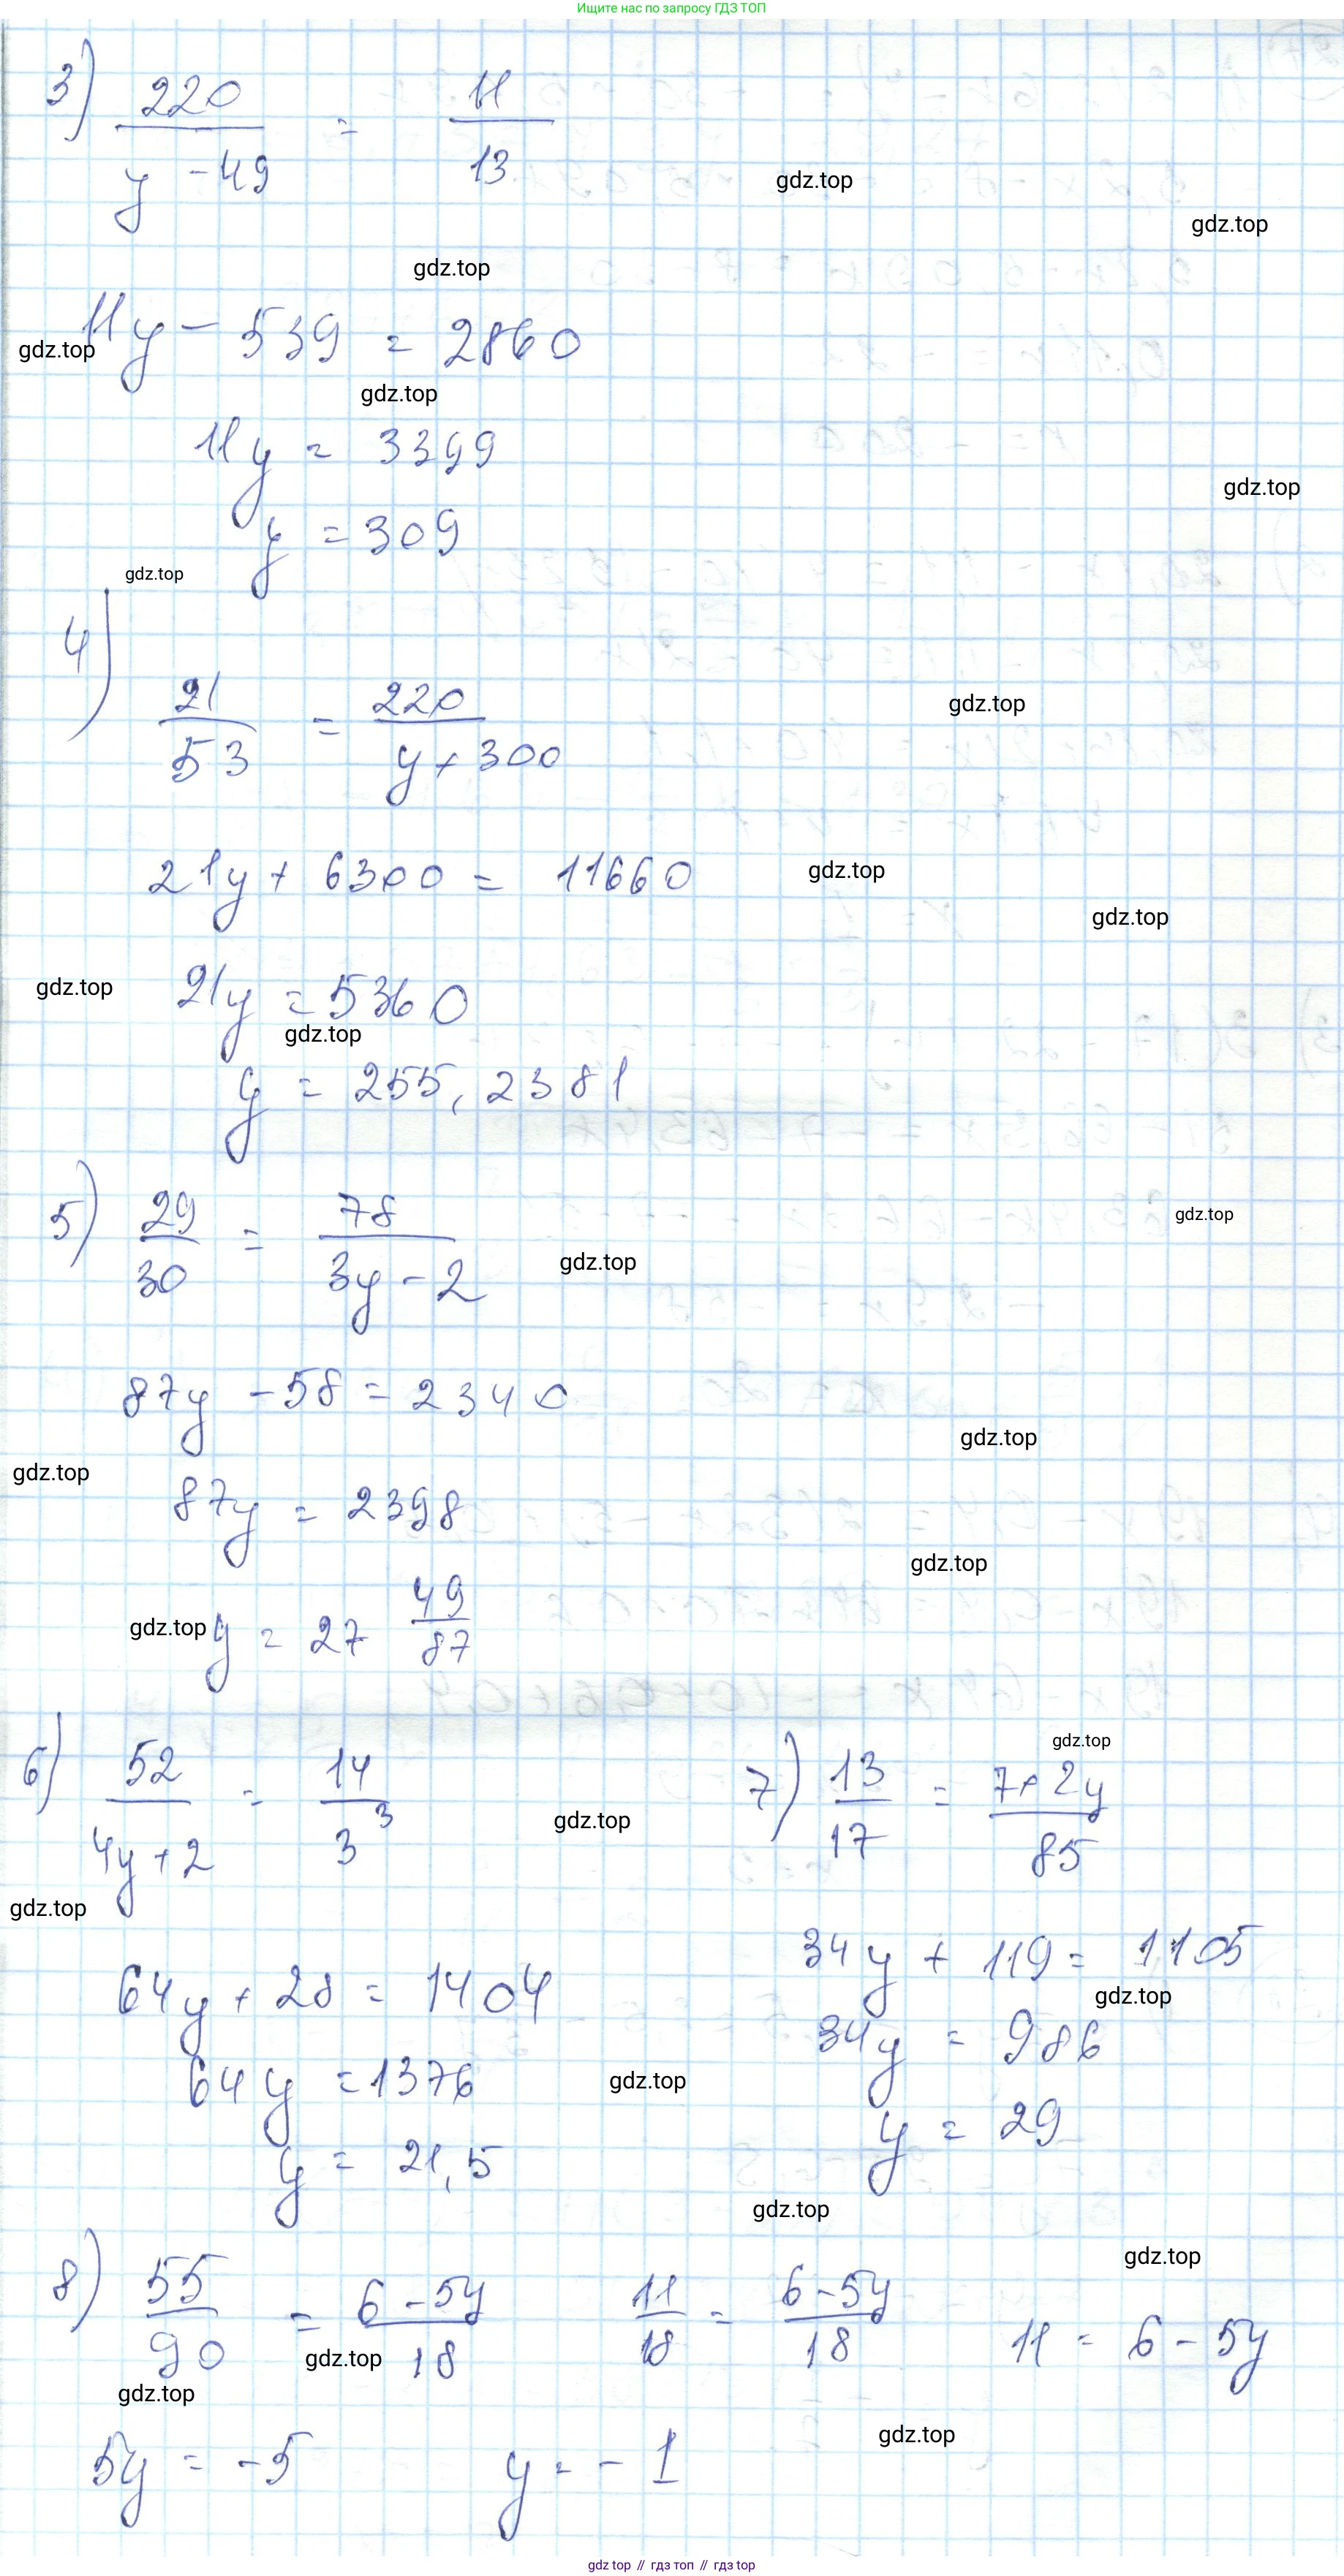 Ищите нас по запросу ГДЗ ТОП
3) 220 / (y - 49) = 11 / 13
gdz.top
gdz.top
gdz.top
11y - 539 = 2860
gdz.top
gdz.top
11y = 3399
gdz.top
y = 309
gdz.top
4) 21 / 53 = 220 / (y + 300)
gdz.top
21y + 6300 = 11660
gdz.top
gdz.top
gdz.top
21y = 5360
gdz.top
y = 255,2381
5) 29 / 30 = 78 / (3y - 2)
gdz.top
gdz.top
87y - 58 = 2340
gdz.top
gdz.top
87y = 2398
gdz.top
gdz.top
y = 27 49/87
6) 52 / (4y + 2) = 14 / 3³
gdz.top
7) 13 / 17 = (7 + 2y) / 85
gdz.top
gdz.top
64y + 28 = 1404
34y + 119 = 1105
gdz.top
64y = 1376
34y = 986
gdz.top
y = 21,5
y = 29
gdz.top
gdz.top
8) 55 / 90 = (6 - 5y) / 18 11 / 18 = (6 - 5y) / 18 11 = 6 - 5y
gdz.top
gdz.top
gdz.top
5y = -5 y = -1
gdz top // гдз топ // гдз top